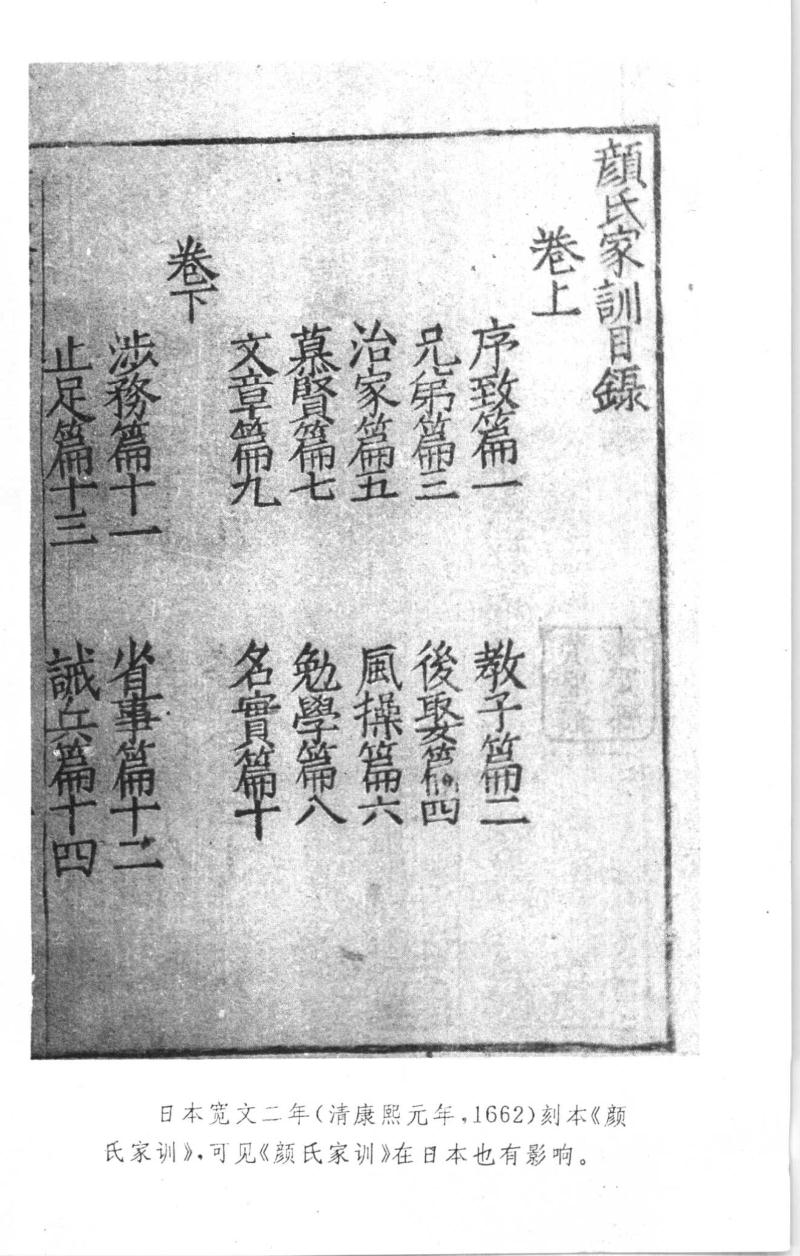 顔氏家訓目録
卷上
序致篇一 教子篇二
兄弟篇三 後娶篇四
治家篇五 風操篇六
慕賢篇七 勉學篇八
文章篇九 名實篇十
卷下
涉務篇十一 省事篇十二
止足篇十三 誡兵篇十四
日本宽文二年(清康熙元年,1662)刻本《颜
氏家训》,可见《颜氏家训》在日本也有影响。